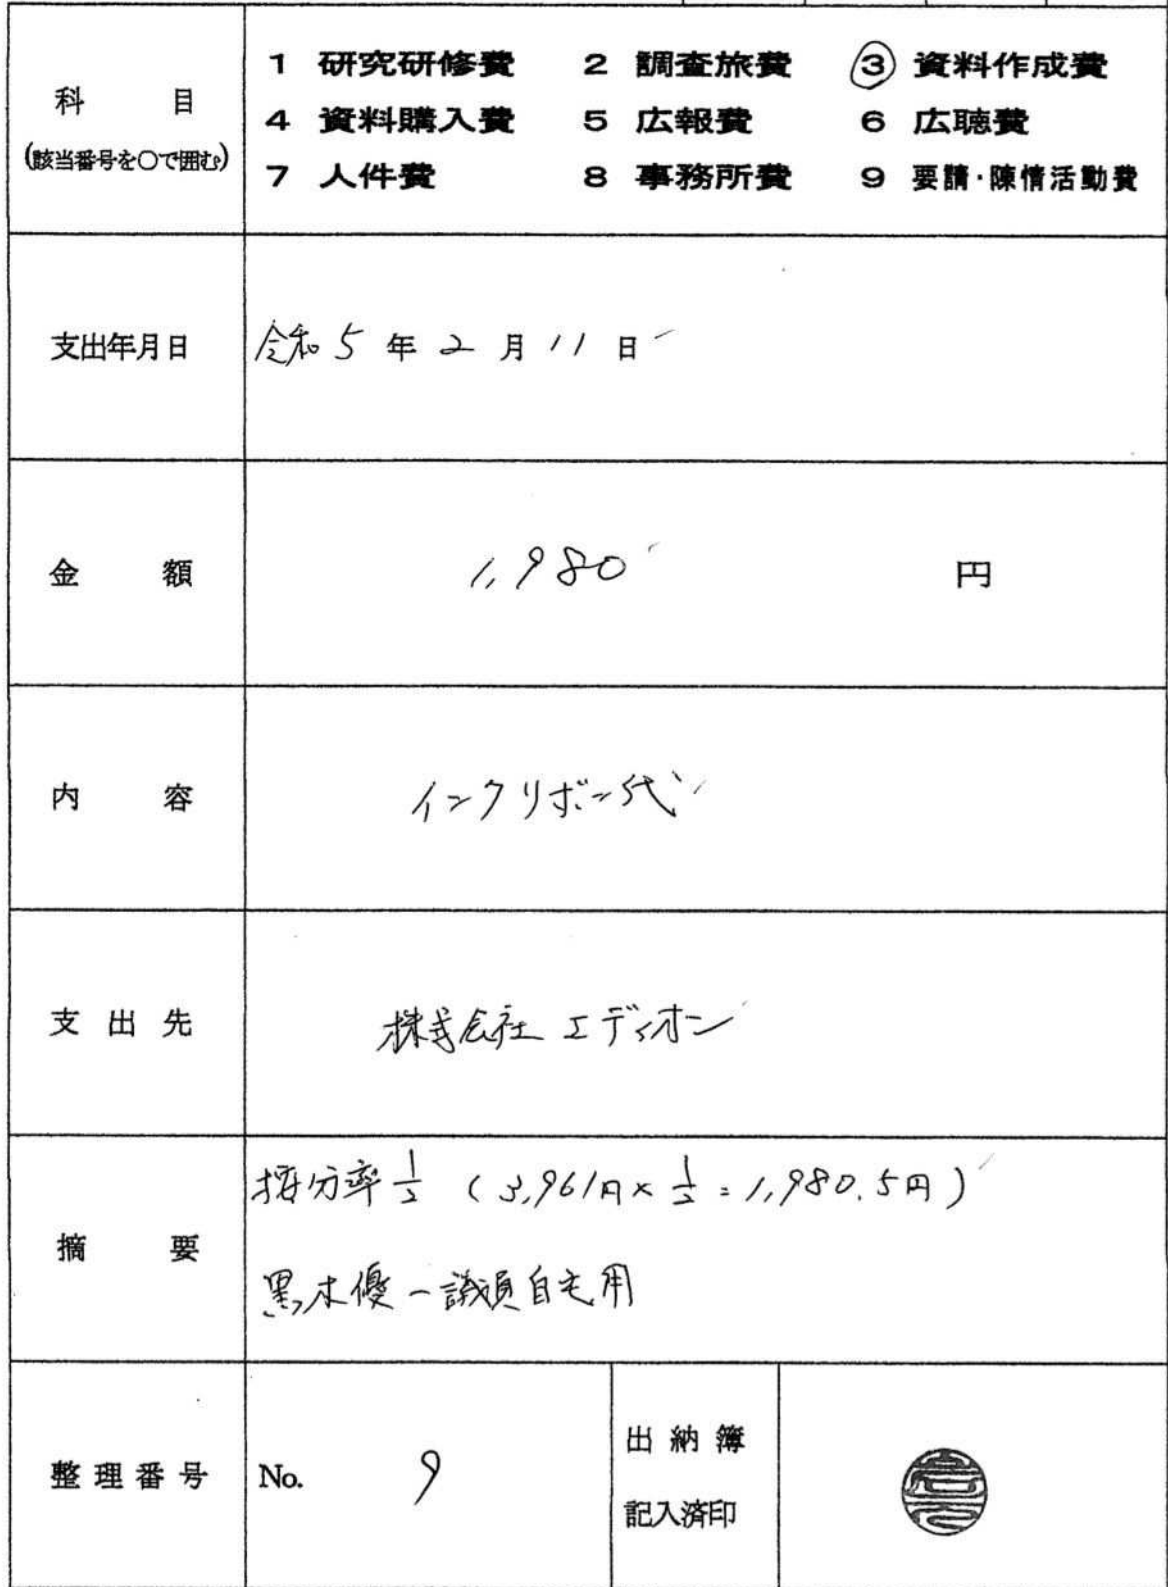 科 目 1 研究研修費 2 調査旅費 ③ 資料作成費
4 資料購入費 5 広報費 6 広聴費
(該当番号を○で囲む) 7 人件費 8 事務所費 9 要請・陳情活動費
支出年月日 令和 5 年 2 月 11 日
金 額 1,980 円
内 容 インクリボン代
支 出 先 株式会社 エディオン
按分率 1/2 (3,961円×1/2=1,980.5円)
摘 要
黒木優一議員自宅用
整理番号 No. 9 出納簿
記入済印